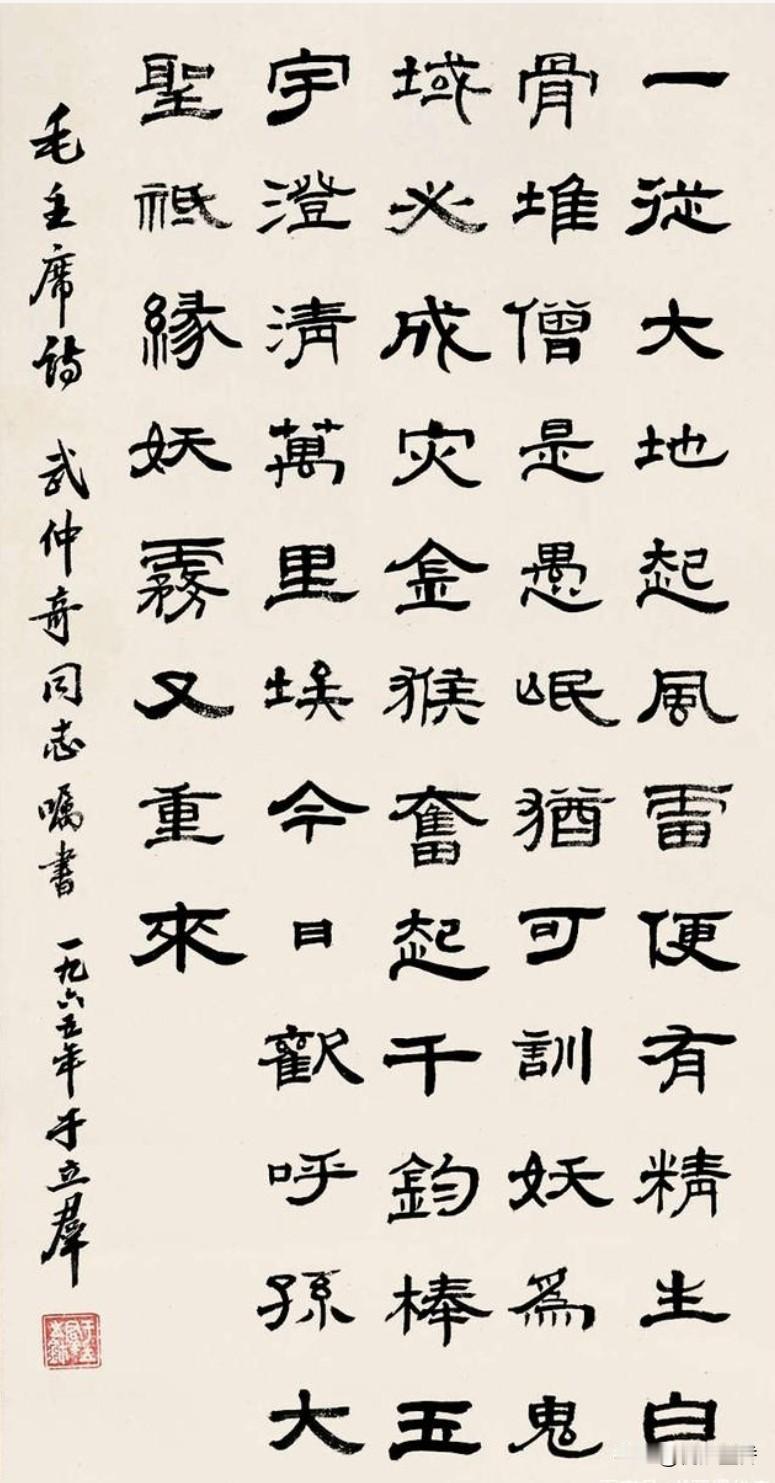 一從大地起風雷便有精生白
骨堆僧是愚氓猶可訓妖為鬼
域必成灾金猴奮起千鈞棒五
宇澄清萬里埃今日歡呼孫大
聖祇緣妖霧又重來
毛主席詩 武仲奇同志嘱書 一九六五年 于立群